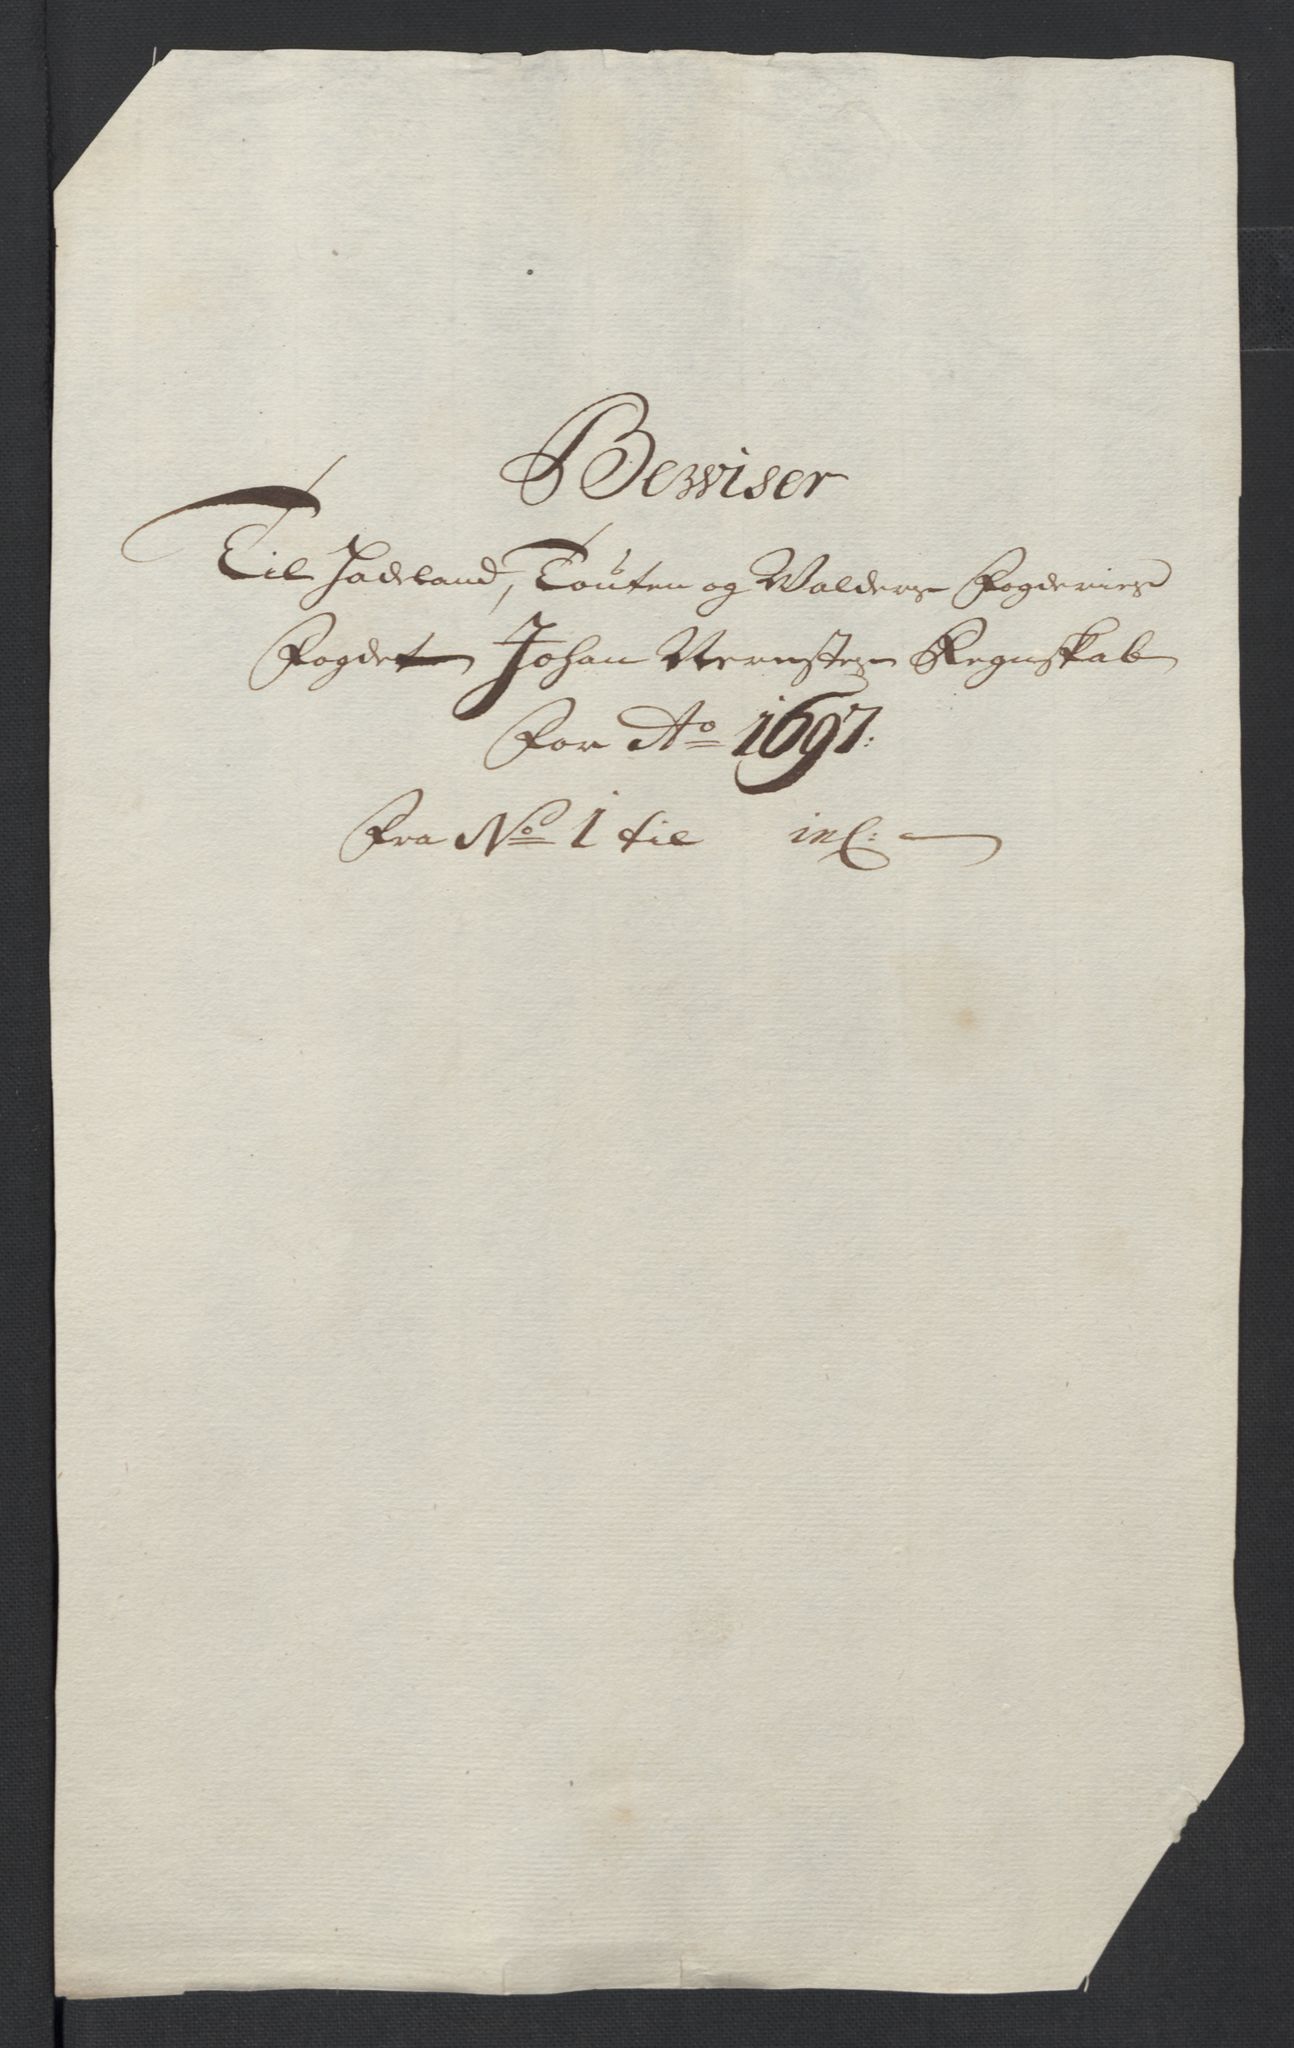 Bewiser
Til Hadeland, Touten og Walders Fogderies
Fogdet Johan Regnskab
For Ao 1697:
Fra No 1 til inl: